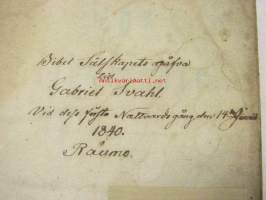 Bibel Sälskapets gåfva
till
Gabriel Svahl.
Vid dess första Nattvardsgång, den 14de Junii
1840.
Raumo.
www.antikvariaatti.net